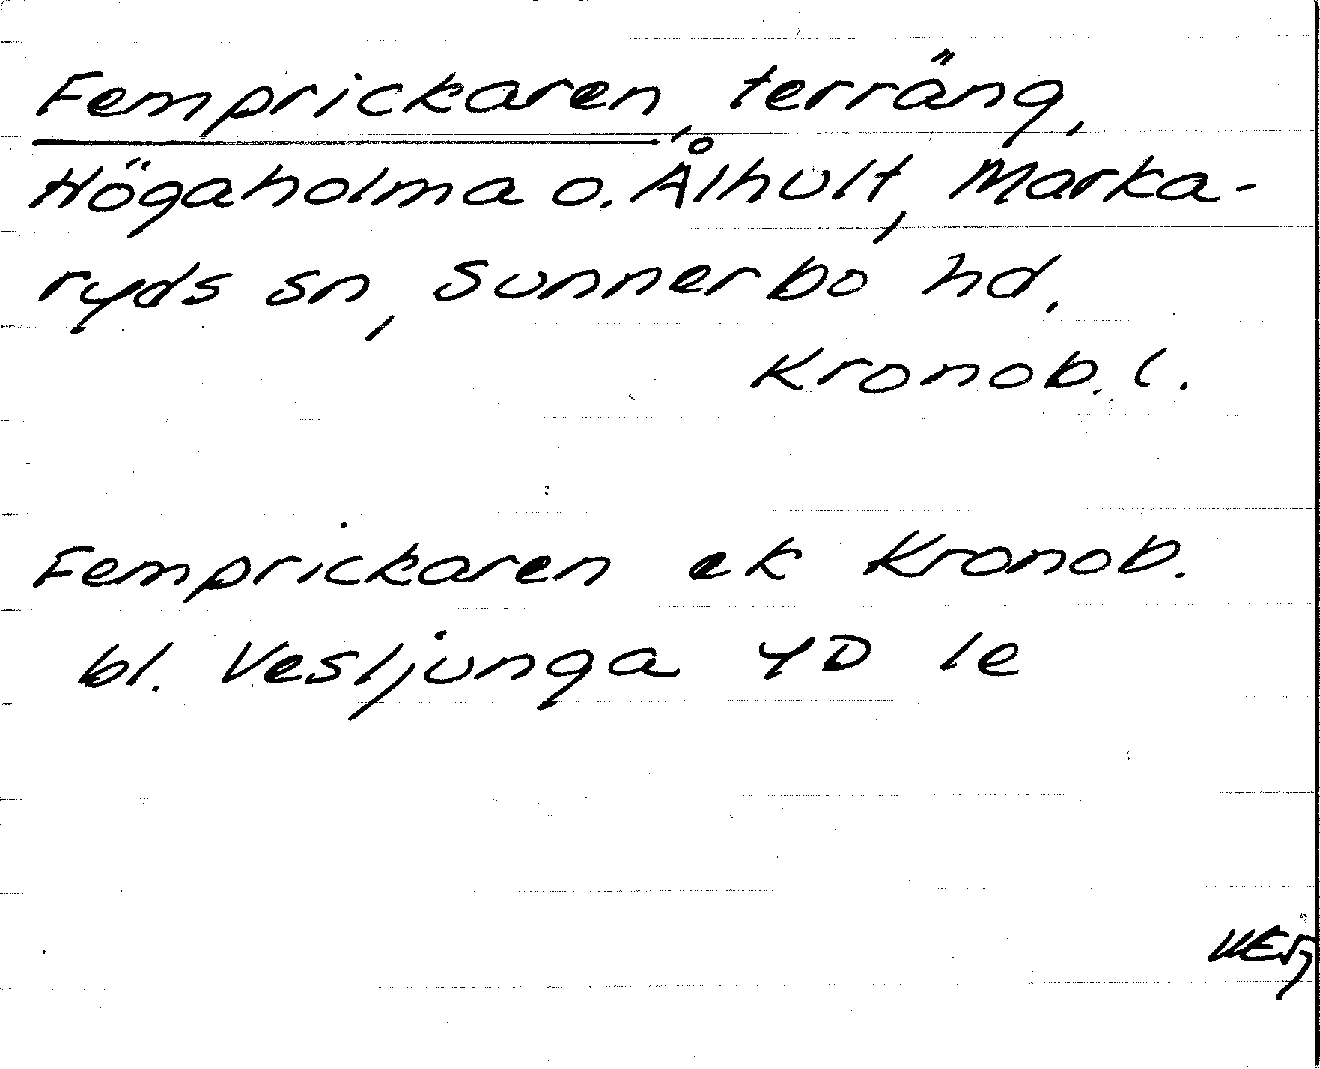 Femprickaren, terräng,
Högaholma o. Ålhult, Marka-
ryds sn, Sunnerbo hd.
Kronob. l.
Femprickaren ek Kronob.
bl. Vesljunga 4D le